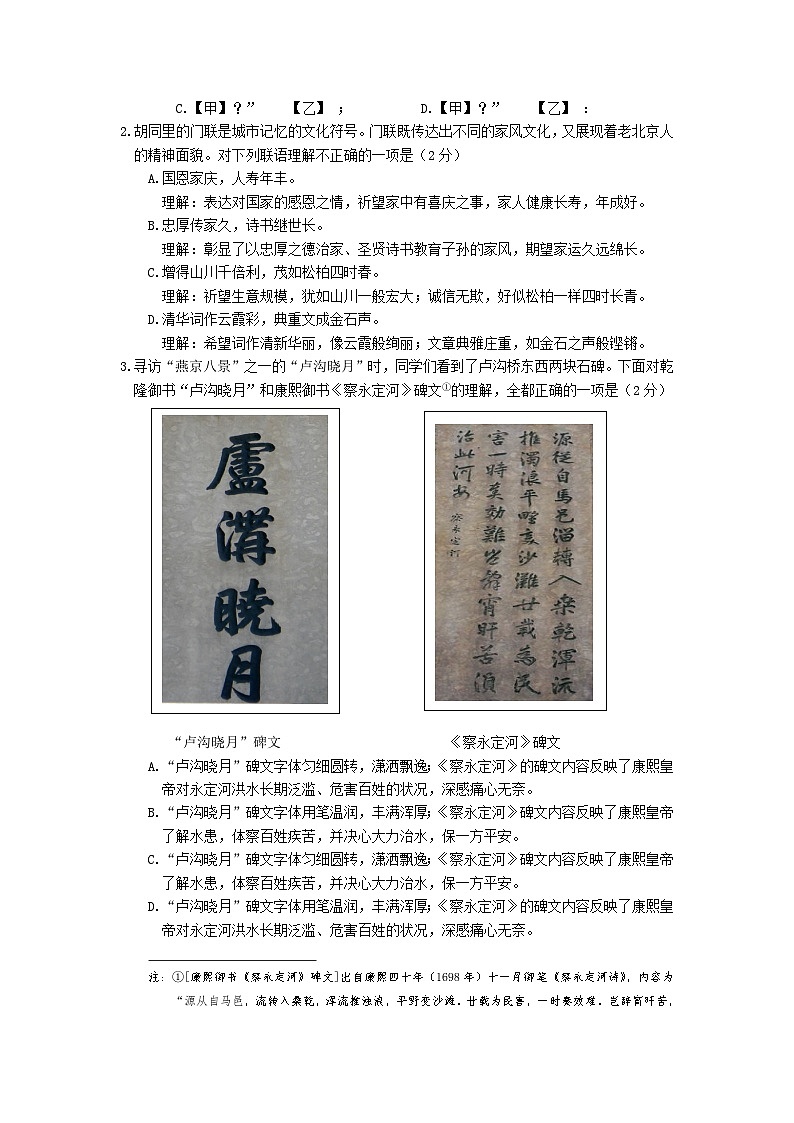 C.【甲】？” 【乙】 ； D.【甲】？” 【乙】 ：
2.胡同里的门联是城市记忆的文化符号。门联既传达出不同的家风文化，又展现着老北京人
的精神面貌。对下列联语理解不正确的一项是（2 分）
A.国恩家庆，人寿年丰。
理解：表达对国家的感恩之情，祈望家中有喜庆之事，家人健康长寿，年成好。
B.忠厚传家久，诗书继世长。
理解：彰显了以忠厚之德治家、圣贤诗书教育子孙的家风，期望家运久远绵长。
C.增得山川千倍利，茂如松柏四时春。
理解：祈望生意规模，犹如山川一般宏大；诚信无欺，好似松柏一样四时长青。
D.清华词作云霞彩，典重文成金石声。
理解：希望词作清新华丽，像云霞般绚丽；文章典雅庄重，如金石之声般铿锵。
3.寻访“燕京八景”之一的“卢沟晓月”时，同学们看到了卢沟桥东西两块石碑。下面对乾
隆御书“卢沟晓月”和康熙御书《察永定河》碑文①的理解，全都正确的一项是（2 分）
盧溝曉月
源從自馬邑溜轉入桑乾渾流
推濁浪平野变沙灘廿载為民
害一時奏効難岂辞宵旰苦須
治此河安
察永定河
“卢沟晓月”碑文 《察永定河》碑文
A.“卢沟晓月”碑文字体匀细圆转，潇洒飘逸；《察永定河》的碑文内容反映了康熙皇
帝对永定河洪水长期泛滥、危害百姓的状况，深感痛心无奈。
B.“卢沟晓月”碑文字体用笔温润，丰满浑厚；《察永定河》碑文内容反映了康熙皇帝
了解水患，体察百姓疾苦，并决心大力治水，保一方平安。
C.“卢沟晓月”碑文字体匀细圆转，潇洒飘逸；《察永定河》碑文内容反映了康熙皇帝
了解水患，体察百姓疾苦，并决心大力治水，保一方平安。
D.“卢沟晓月”碑文字体用笔温润，丰满浑厚；《察永定河》的碑文内容反映了康熙皇
帝对永定河洪水长期泛滥、危害百姓的状况，深感痛心无奈。
注：①[康熙御书《察永定河》碑文]出自康熙四十年（1698 年）十一月御笔《察永定河诗》，内容为
“源从自马邑，流转入桑乾，浑流推浊浪，平野变沙滩．廿载为民害，一时奏效难．岂辞宵旰苦，